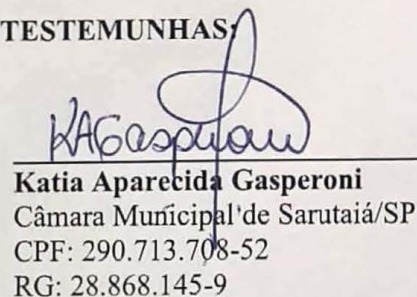 TESTEMUNHAS:
KAGasperoni
Katia Aparecida Gasperoni
Câmara Municipal de Sarutaiá/SP
CPF: 290.713.708-52
RG: 28.868.145-9